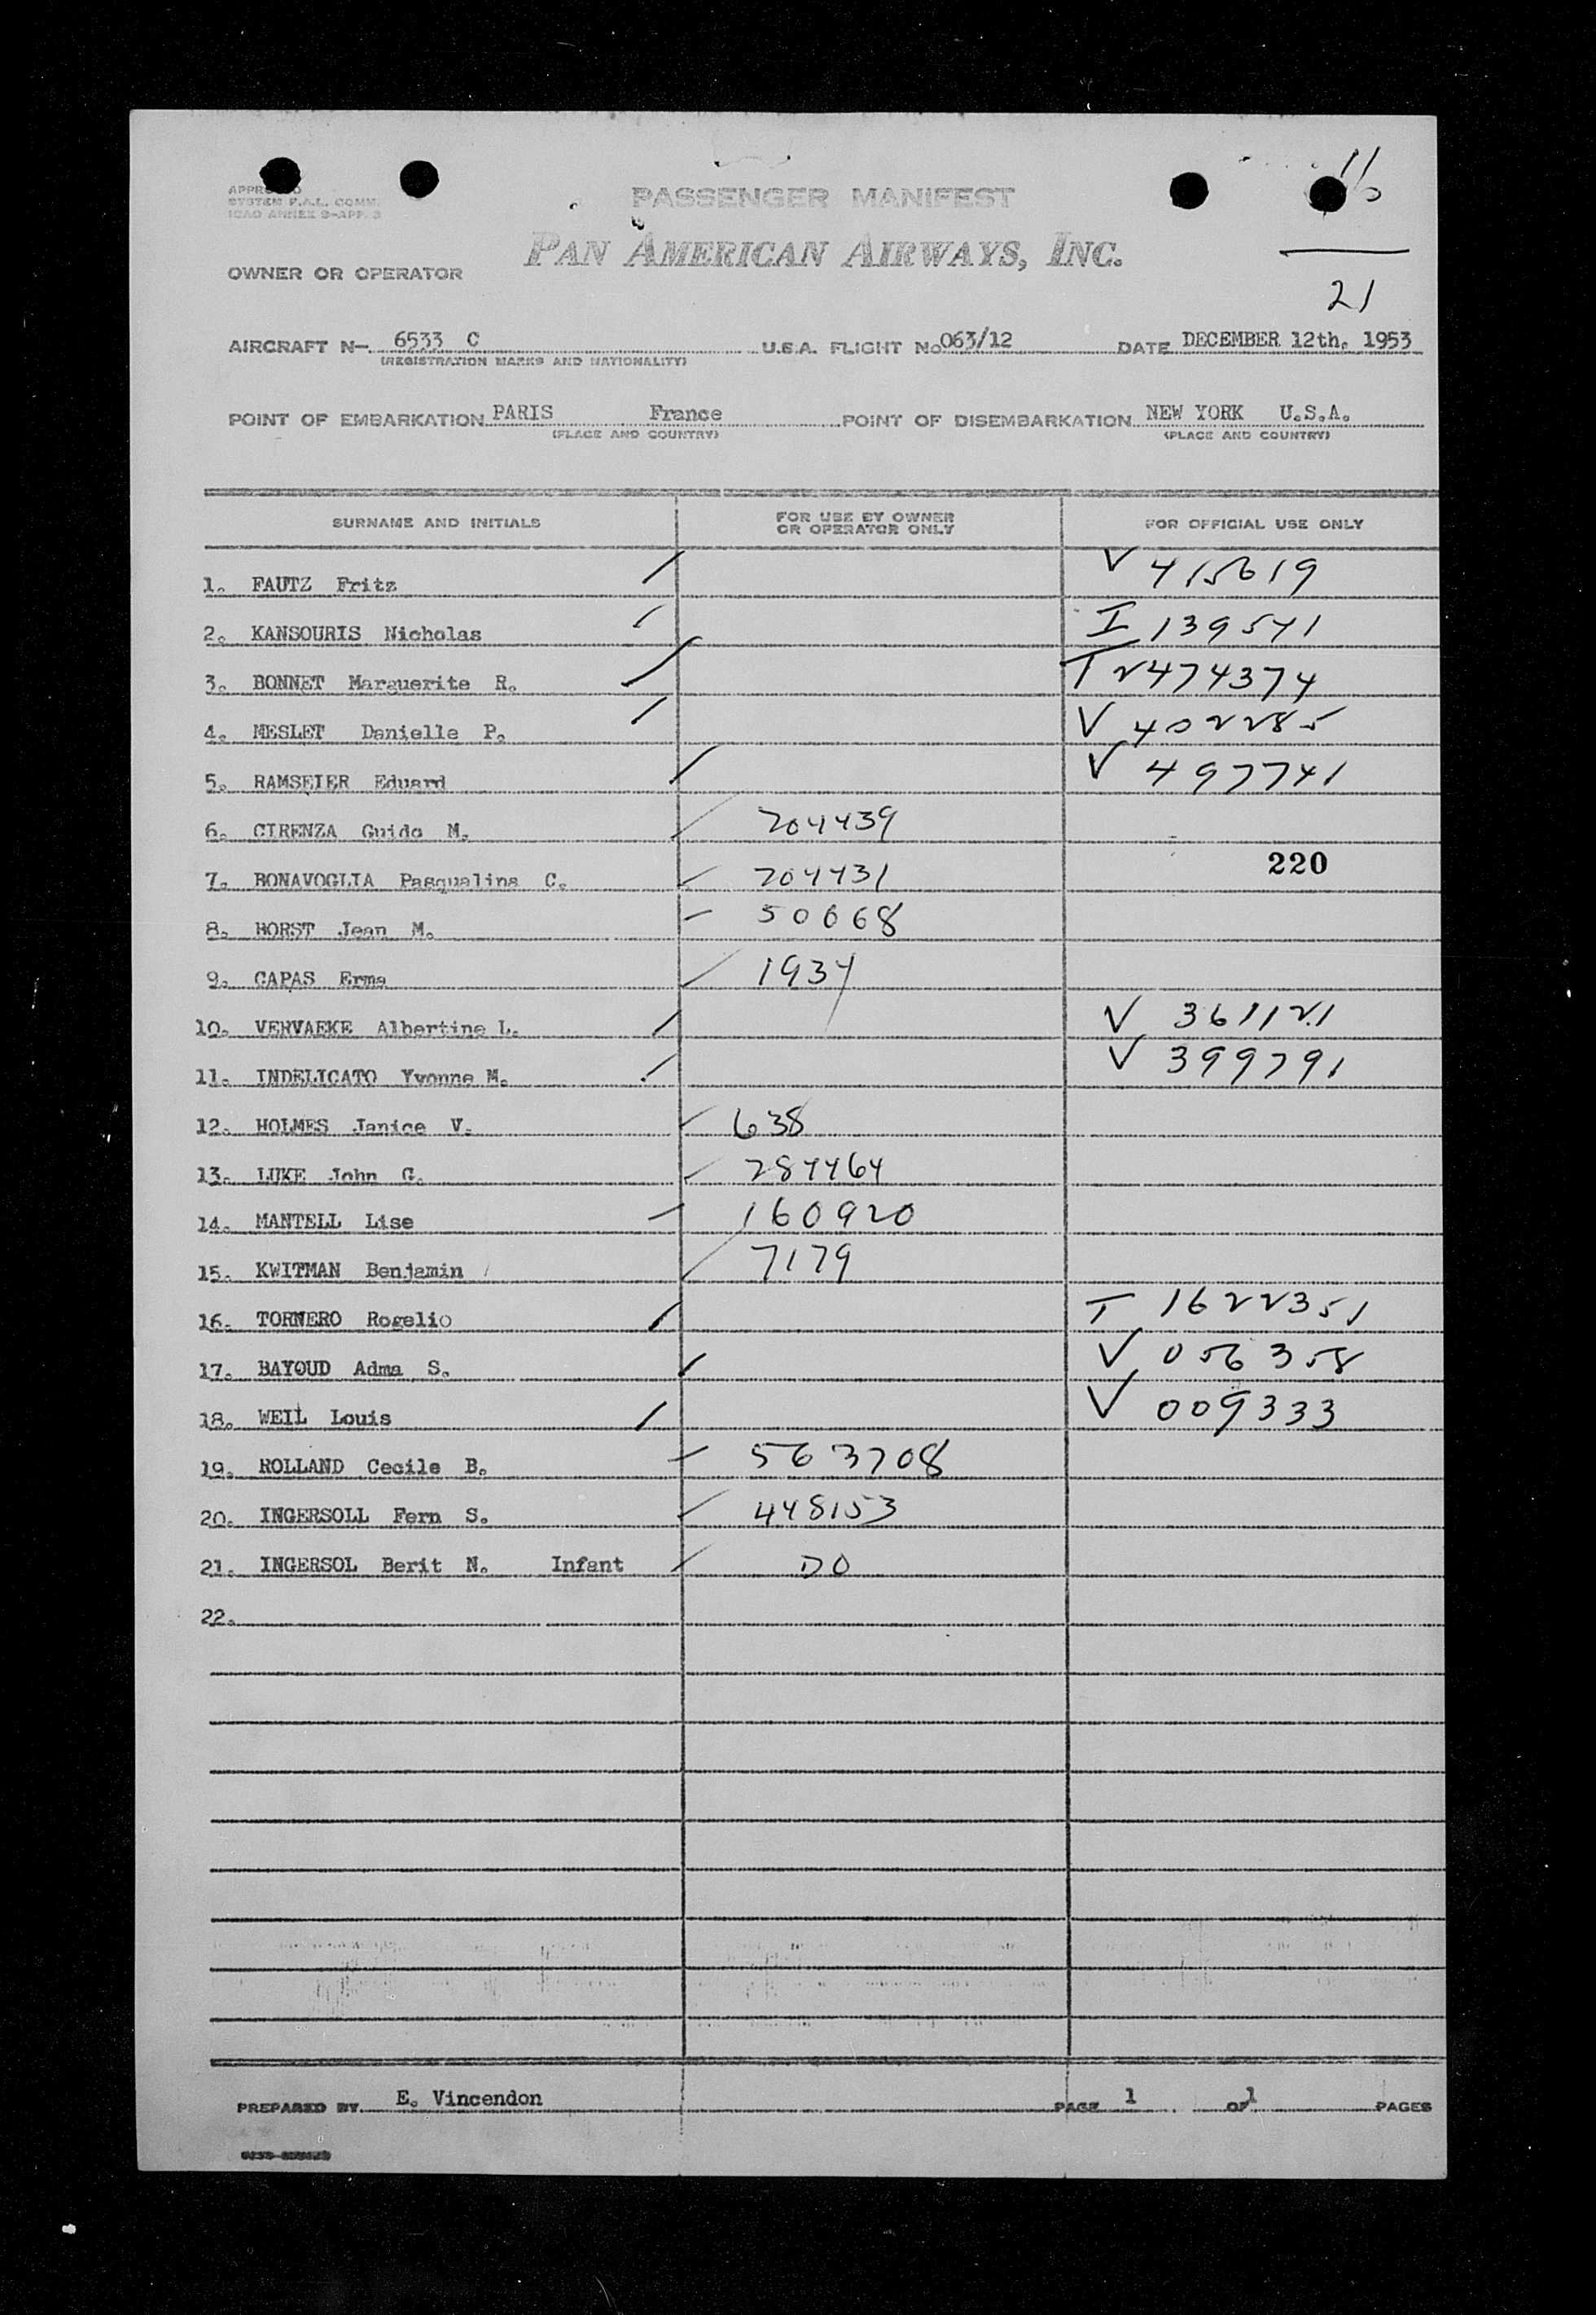 APPROVED
SYSTEM P.A.L. COMM.
ICAO ANNEX 9-APP. 3
PASSENGER MANIFEST
PAN AMERICAN AIRWAYS, INC.
OWNER OR OPERATOR
21
AIRCRAFT N- 6533 C U.S.A. FLIGHT No 063/12 DATE DECEMBER 12th. 1953
(REGISTRATION MARKS AND NATIONALITY)
POINT OF EMBARKATION PARIS France POINT OF DISEMBARKATION NEW YORK U.S.A.
(PLACE AND COUNTRY) (PLACE AND COUNTRY)
SURNAME AND INITIALS FOR USE BY OWNER OR OPERATOR ONLY FOR OFFICIAL USE ONLY
1. FAUTZ Fritz V 415619
2. KANSOURIS Nicholas I 139541
3. BONNET Marguerite R. T 2474374
4. MESLET Danielle P. V 402285
5. RAMSEIER Eduard V 497741
6. CIRENZA Guido M. 204439
220
7. BONAVOGLIA Pasqualina C. 204431
8. HORST Jean M. 50068
9. CAPAS Erma 1934
10. VERVAEKE Albertine L. V 361121
11. INDELICATO Yvonne M. V 399791
12. HOLMES Janice V. 638
13. LUKE John G. 284464
14. MANTELL Lise 160920
15. KWITMAN Benjamin 7179
16. TORNERO Rogelio T 1622351
17. BAYOUD Adma S. V 056358
18. WEIL Louis V 009333
19. ROLLAND Cecile B. 563708
20. INGERSOLL Fern S. 448153
21. INGERSOL Berit N. Infant DO
22.
PREPARED BY E. Vincendon PAGE 1 OF 1 PAGES